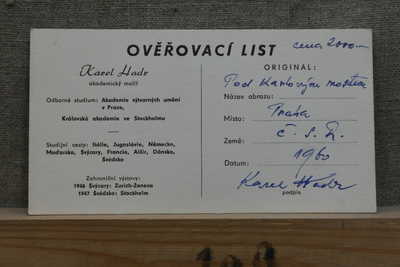 OVĚŘOVACÍ LIST
cena 2000.—
Karel Hadr
akademický malíř
Odborné studium: Akademie výtvarných umění
v Praze,
Královská akademie ve Stockholmu
Studijní cesty: Itálie, Jugoslávie, Německo,
Maďarsko, Švýcary, Francie, Alžír, Dánsko,
Švédsko
Zahraniční výstavy:
1946 Švýcary: Zurich-Zeneva
1947 Švédsko: Stockholm
ORIGINÁL:
Pod Karlovým mostem
Název obrazu:
Místo: Praha
Země: Č. S. R.
Datum: 1960
Karel Hadr
podpis